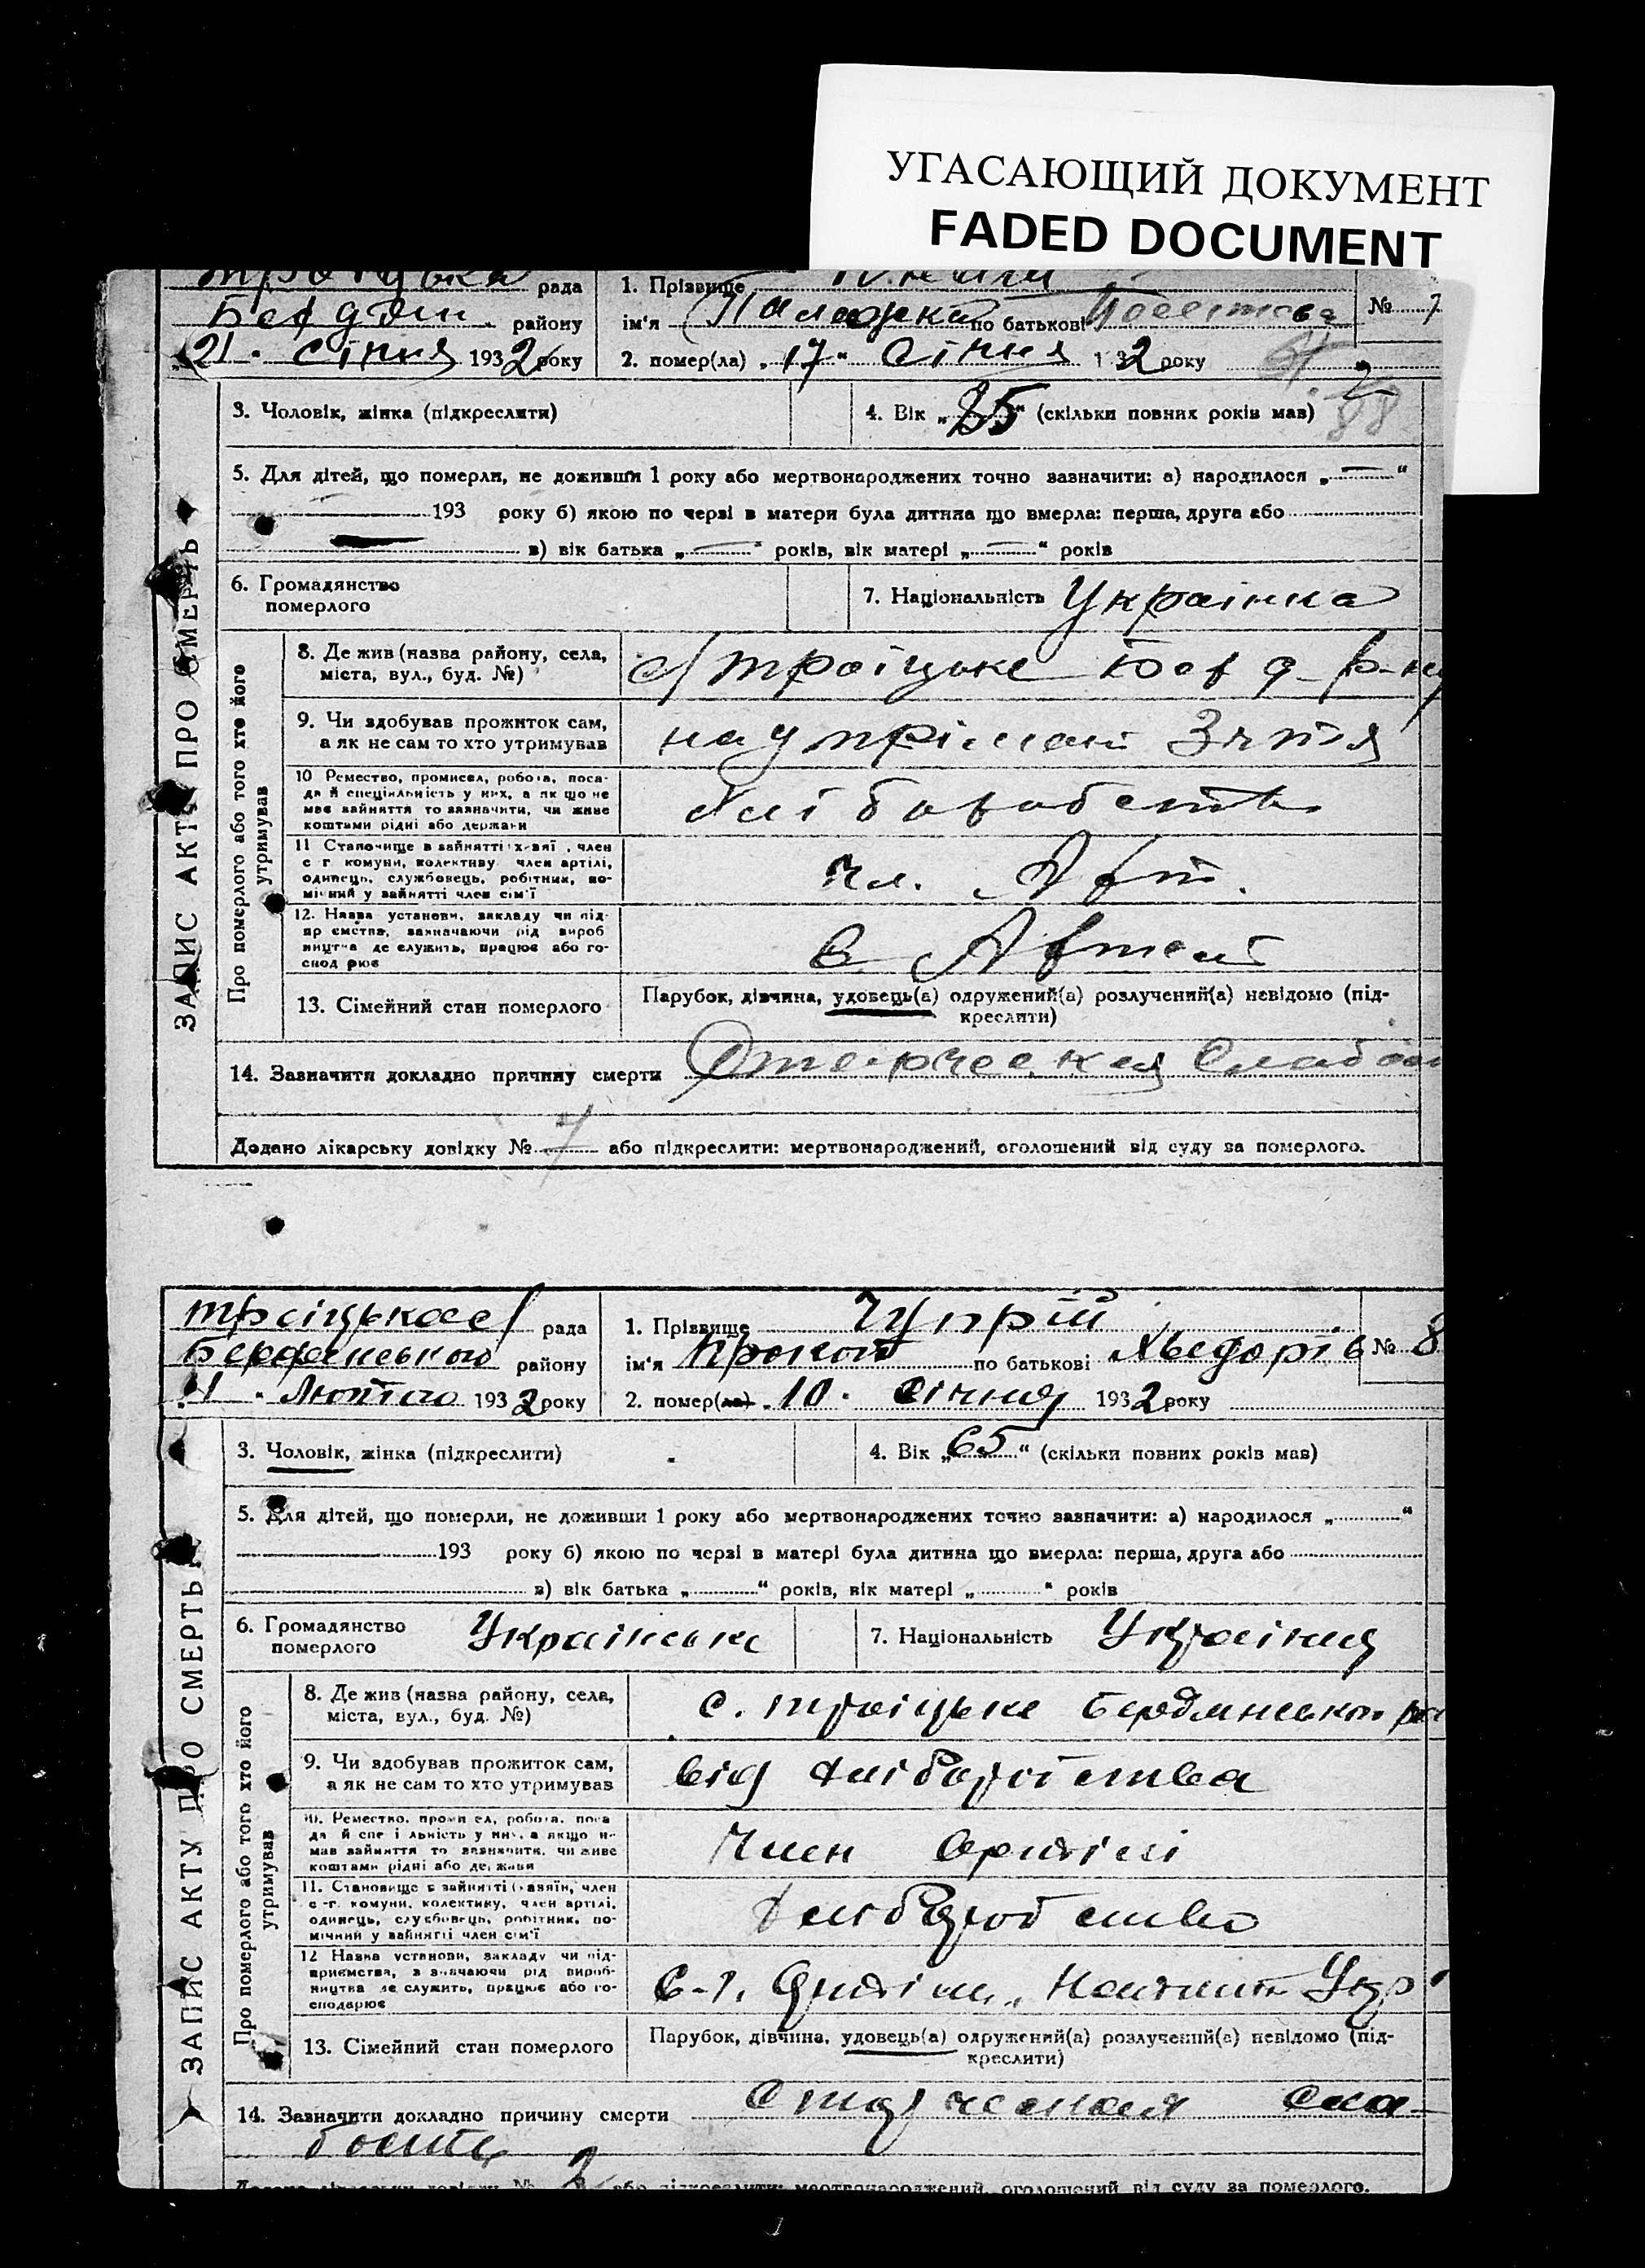 УГАСАЮЩИЙ ДОКУМЕНТ
FADED DOCUMENT
рада
1. Прізвище
району
ім'я Палажка по батькові
№ 7
21 січня 1932 року
2. помер(ла) „17" січня 132 року
3. Чоловік, жінка (підкреслити)
4. Вік „85" (скільки повних років мав)
88
5. Для дітей, що померли, не доживши 1 року або мертвонароджених точно зазначити: а) народилося „ — "
193 року б) якою по черзі в матери була дитина що вмерла: перша, друга або
в) вік батька „ — " років, вік матері „ — " років
6. Громадянство
померлого
7. Національність Українка
ЗАПИС АКТУ ПРО СМЕРТЬ
Про померлого або того хто його
утримував
8. Де жив (назва району, села,
міста, вул., буд. №)
троїцьке
9. Чи здобував прожиток сам,
а як не сам то хто утримував
на утріманні Зятя
10 Ремество, промисел, робота, поса-
да й спеціяльність у них, а як що не
мав зайняття то зазначити, чи живе
коштами рідні або держави
11 Становище в зайнятті член
с г. комуни, колективу член артілі,
одинець, службовець, робітник, по-
мічний у зайнятті член сім'ї
чл. Арт.
12. Назва установи, закладу чи під-
приємства, зазначаючи рід вироб
ництва де служить, працює або го-
спод рює
в Артелі
13. Сімейний стан померлого
Парубок, дівчина, удовець(а) одружений(а) розлучений(а) невідомо (під-
креслити)
14. Зазначити докладно причину смерти Старческая Слабост
Додано лікарську довідку № 7 або підкреслити: мертвонароджений, оголошений від суду за померлого.
рада
1. Прізвище Чуприй
Бердянського району
ім'я Прокоп по батькові Хведорів
№ 8
Лютого 1932 року
2. помер(ла) „10" січня 1932 року
3. Чоловік, жінка (підкреслити)
4. Вік „65" (скільки повних років мав)
5. Для дітей, що померли, не доживши 1 року або мертвонароджених точно зазначити: а) народилося „ "
193 року б) якою по черзі в матері була дитина що вмерла: перша, друга або
в) вік батька „ " років, вік матері „ " років
6. Громадянство
померлого
Українське
7. Національність
ЗАПИС АКТУ ПРО СМЕРТЬ
Про померлого або того хто його
утримував
8. Де жив (назва району, села,
міста, вул., буд. №)
с. троїцьке Бердянського ра
9. Чи здобував прожиток сам,
а як не сам то хто утримував
від хліборобства
10. Ремество, промисел, робота, поса
да й спеціяльність у них, а якщо н-
мав зайняття то зазначити, чи живе
коштами рідні або держави
Член Артілі
11. Становище в зайнятті (хазяїн, член
с.-г. комуни, колективу, член артілі,
одинець, службовець, робітник, по-
мічний у зайнятті член сім'ї
Хліборобство
12 Назва установи, закладу чи під-
приємства, зазначаючи рід вироб-
ництва де служить, працює або го-
сподарює
С-г. Артіль
13. Сімейний стан померлого
Парубок, дівчина, удовець(а) одружений(а) розлучений(а) невідомо (під-
креслити)
14. Зазначити докладно причину смерти Старческая сла-
бость
Додано лікарську довідку № 2 або підкреслити: мертвонароджений, оголошений від суду за померлого.